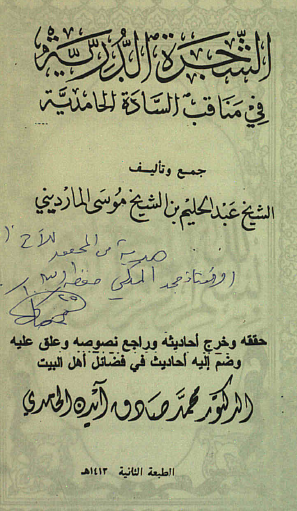 الشجرة الدرية
في مناقب السادة الحامدية
جمع وتأليف
الشيخ عبد الحليم بن الشيخ موسى المارديني
هدية من المحقق للأخ
محمد المكي حفظه الله
حققه وخرج أحاديثه وراجع نصوصه وعلق عليه
وضم إليه أحاديث في فضائل أهل البيت
الدكتور محمد صادق آيدن الحامدي
الطبعة الثانية ١٤١٣هـ